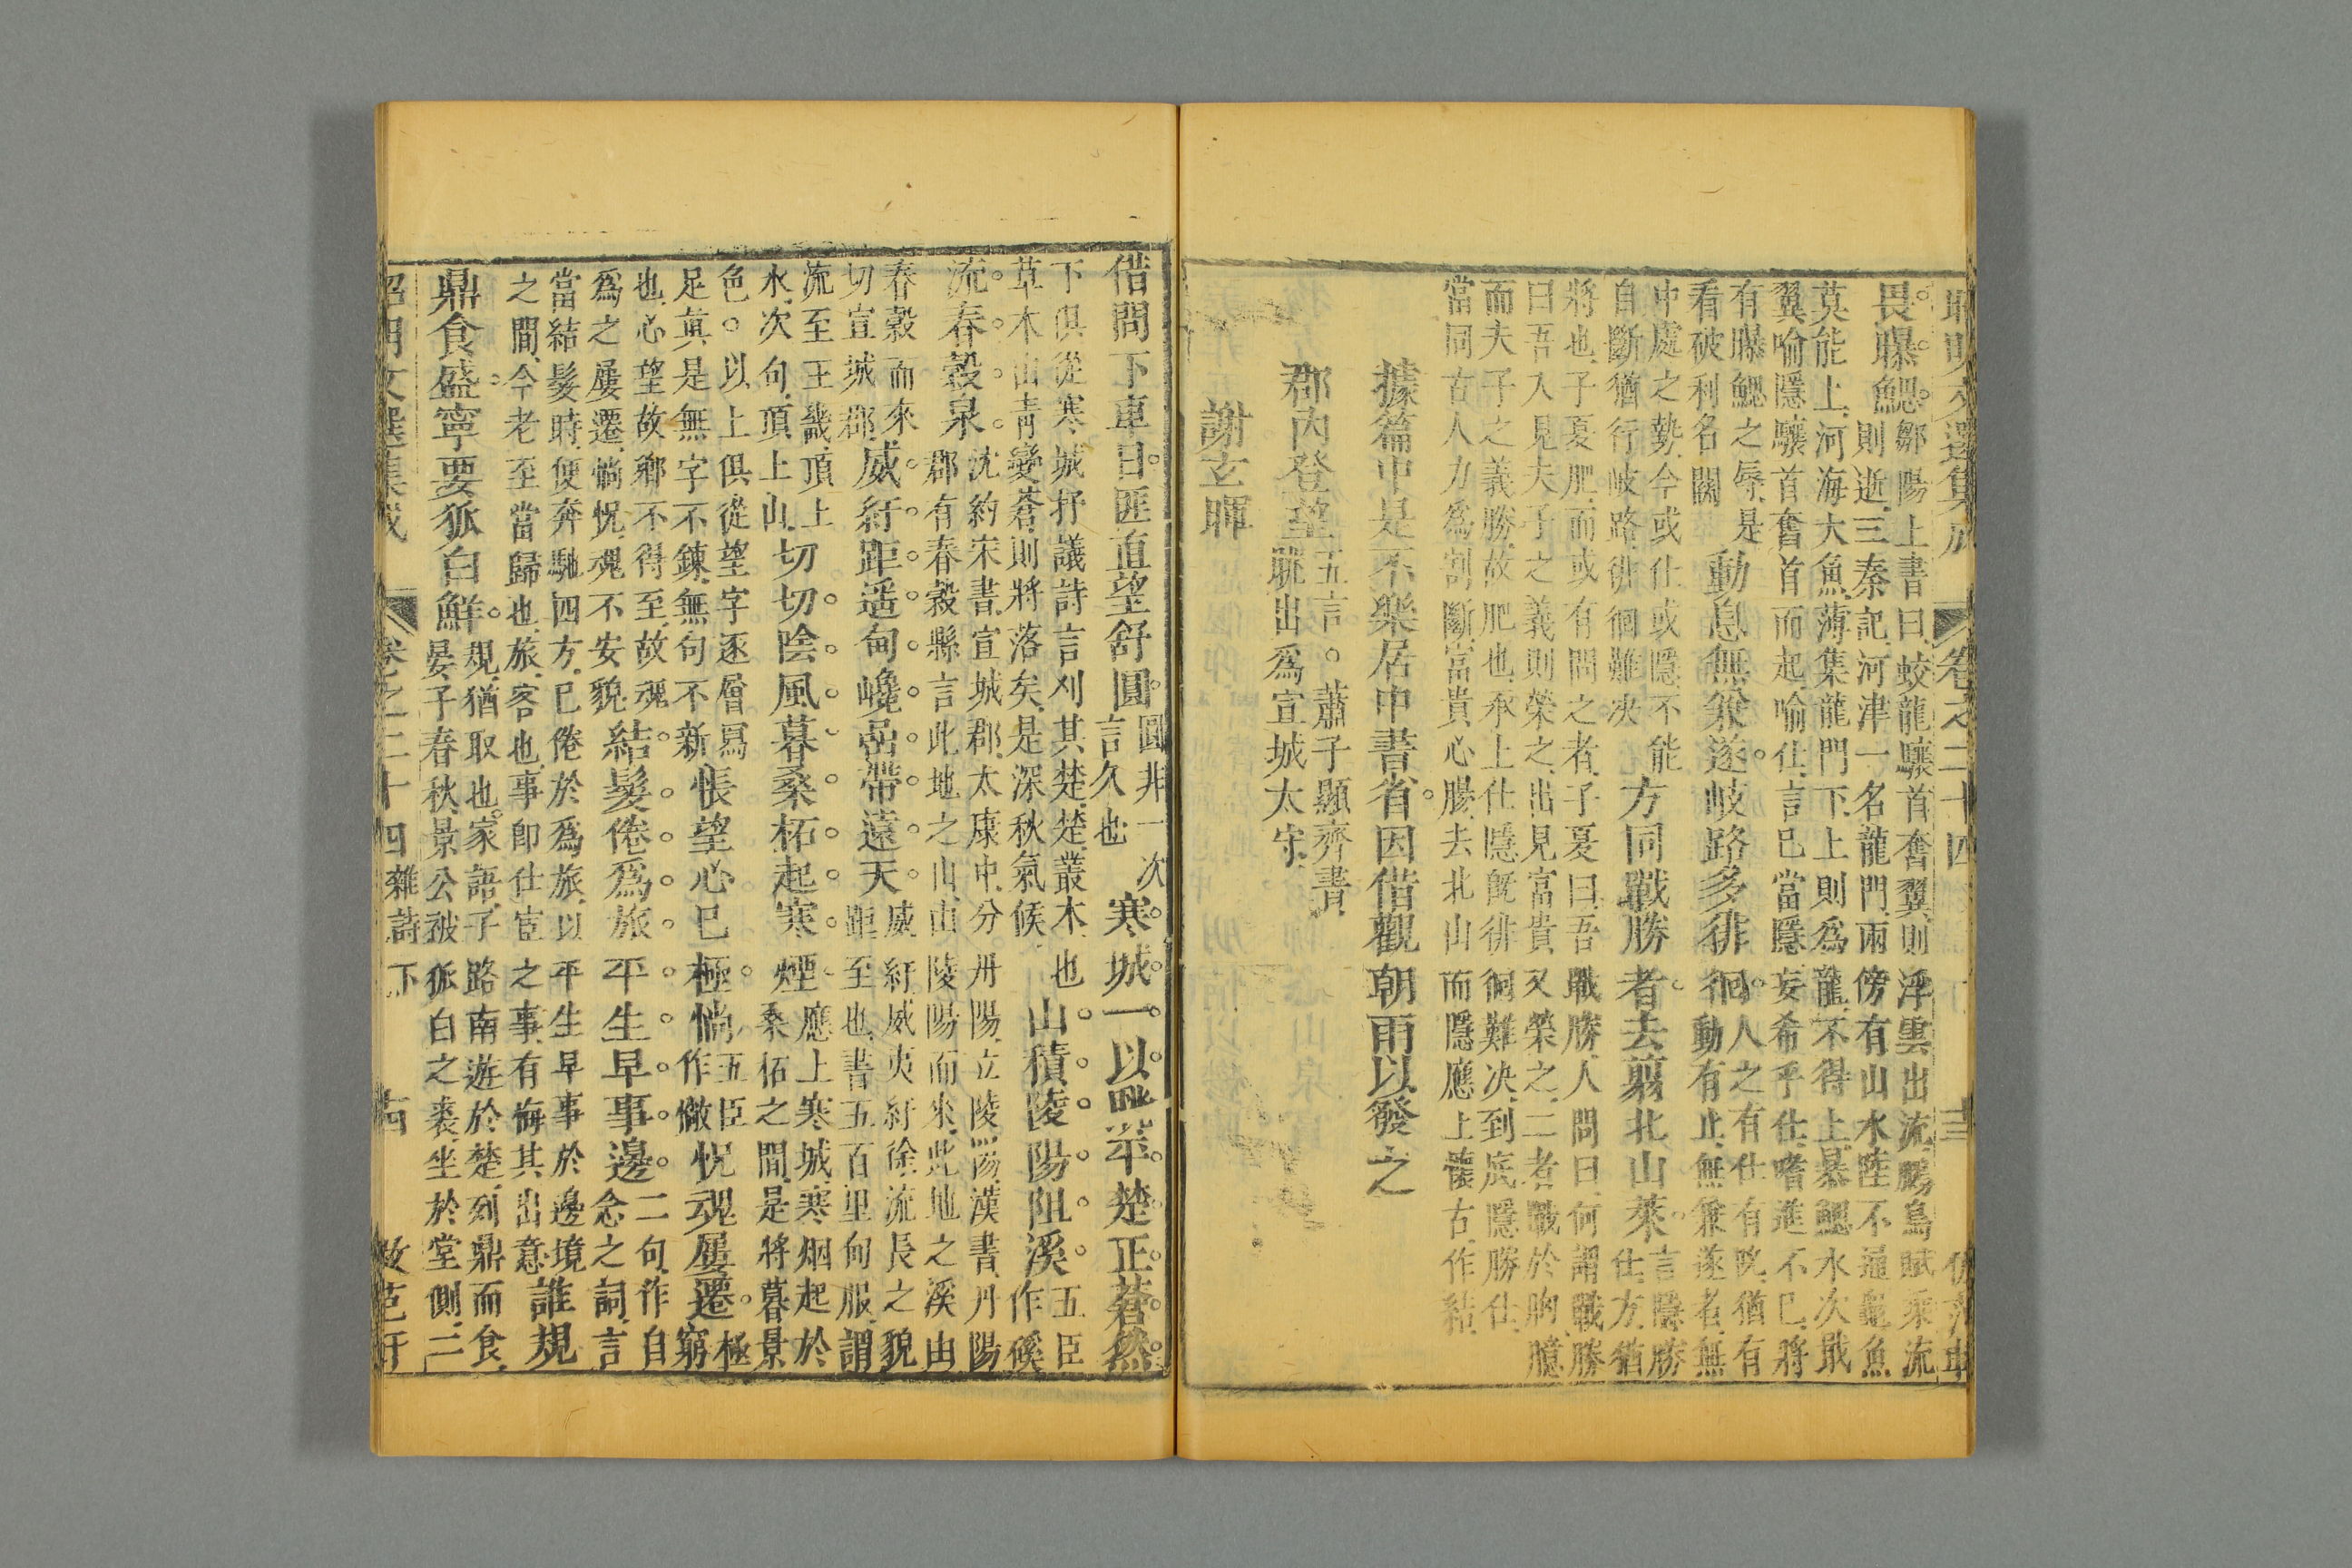 昭明文選集成 卷之二十四 十三
畏曝鰓 鄒陽上書曰蛟龍驤首奮翼則浮雲出流鵩鳥賦乘流
則逝三秦記河津一名龍門兩傍有山水陸不通龜魚
莫能上河海大魚薄集龍門下上則爲龍不得上暴鰓水次戢
翼喻隱驤首奮首而起喻仕言已當隱妄希乎仕嗜進不已將
有曝鰓之辱是
看破利名關
動息無兼遂。岐路多徘徊。
人之有仕有阮猶有
動有止無兼遂者無
中處之勢今或仕或隱不能
自斷猶行岐路徘徊難决
方同戰勝者。去翦北山萊。
言隱勝
仕方猶
將也子夏肥而或有問之者子夏曰吾戰勝人問曰何謂戰勝
曰吾入見夫子之義則榮之出見富貴又榮之二者戰於胸臆
而夫子之義勝故肥也承上仕隱旣徘徊難决到底隱勝仕
當同古人力爲割斷富貴心腸去北山而隱應上懷古作結
據篇中是不樂居中書省。因借觀朝雨以發之
郡內登望
五言。蕭子顯齊書
眺出爲宣城太守
謝玄暉
借問下車日。匪直望舒圓。
圓非一次
言久也
寒城一以眺。平楚正蒼然。
下俱從寒城抒議詩言刈其楚楚叢木也
草木山青變蒼則將落矣是深秋氣候
山積陵陽阻。溪
五臣
作磎
流春穀泉。
沈約宋書宣城郡太康中分丹陽立陵陽漢書丹陽
郡有春穀縣言此地之山由陵陽而來此地之溪由
春穀而來
切宣城郡
威紆距遥甸。巉嵒帶遠天。
威紆威夷紆徐流長之貌
距至也書五百里甸服謂
流至王畿頂上
水次句頂上山
切切陰風暮。桑柘起寒煙。
應上寒城寒烟起於
桑柘之間是將暮景
色。以上俱從望字逐層寫
足眞是無字不錬無句不新
悵望心已極。惝
五臣
作儆
怳魂屢遷。
極
窮
也心望故鄉不得至故魂
爲之屢遷惝怳魂不安貌
結髮倦爲旅。平生早事邊。
二句作自
念之詞言
當結髮時便奔馳四方已倦於爲旅以平生早事於邊境
之間今老至當歸也旅客也事卽仕宦之事有悔其出意
誰規
鼎食盛。寧要狐白鮮。
規猶取也。家語子路南遊於楚列鼎而食
晏子春秋景公被狐白之裘坐於堂側二
昭明文選集成 卷之二十四 雜詩下